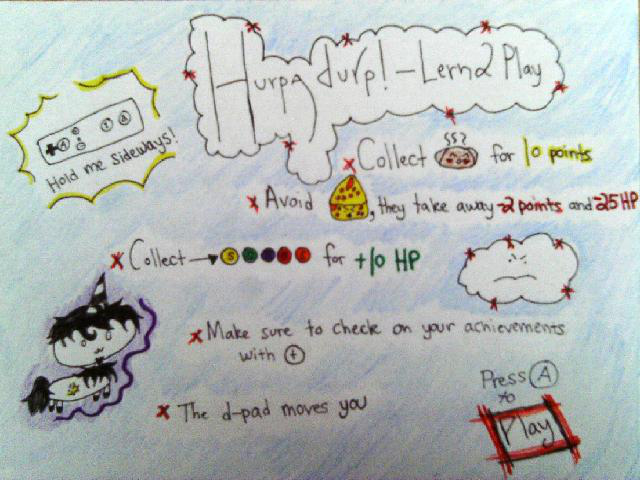 Hurpa durp! - Lern2 Play
Hold me sideways!
x Collect for 10 points
x Avoid , they take away -2 points and -25 HP
x Collect → for +10 HP
x Make sure to check on your achievements
with +
x The d-pad moves you
Press A
to
Play